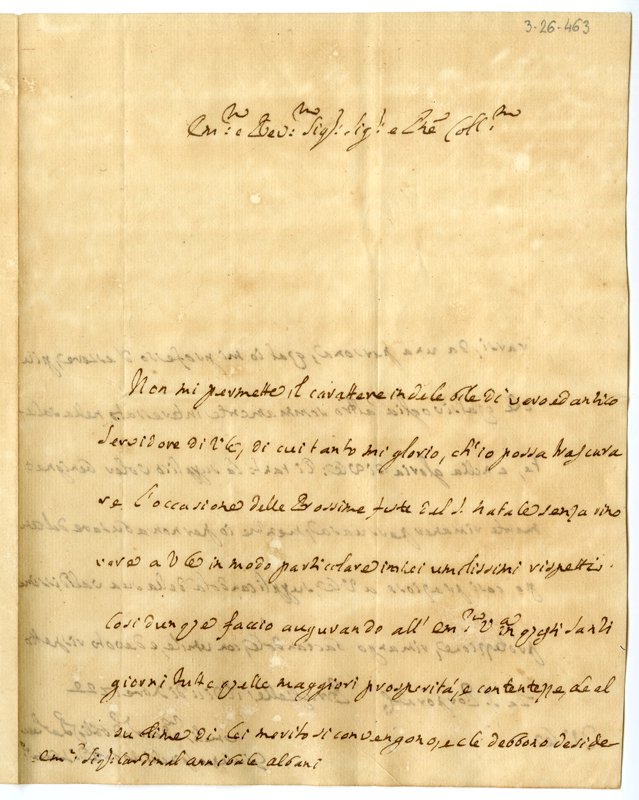 3-26-463
Em:mo e Rev:mo Sig:r Sig:r e P̃ne Coll:mo
Non mi permette il carattere indelebile di vero ed antico
Servidore di V E, di cui tanto mi glorio, ch'io possa trascura
re l'occasione delle Prossime feste del S. Natale senza rino
vare a V E in modo particolare i miei umilissimi rispetti.
Cosi dunque faccio augurando all' Em:za V:ra in questi Santi
giorni tutte quelle maggiori prosperità, e contentezze, che al
sublime di lei merito si convengono, e che debbono deside
Em:mo Sig:r Cardinal Annibale Albani